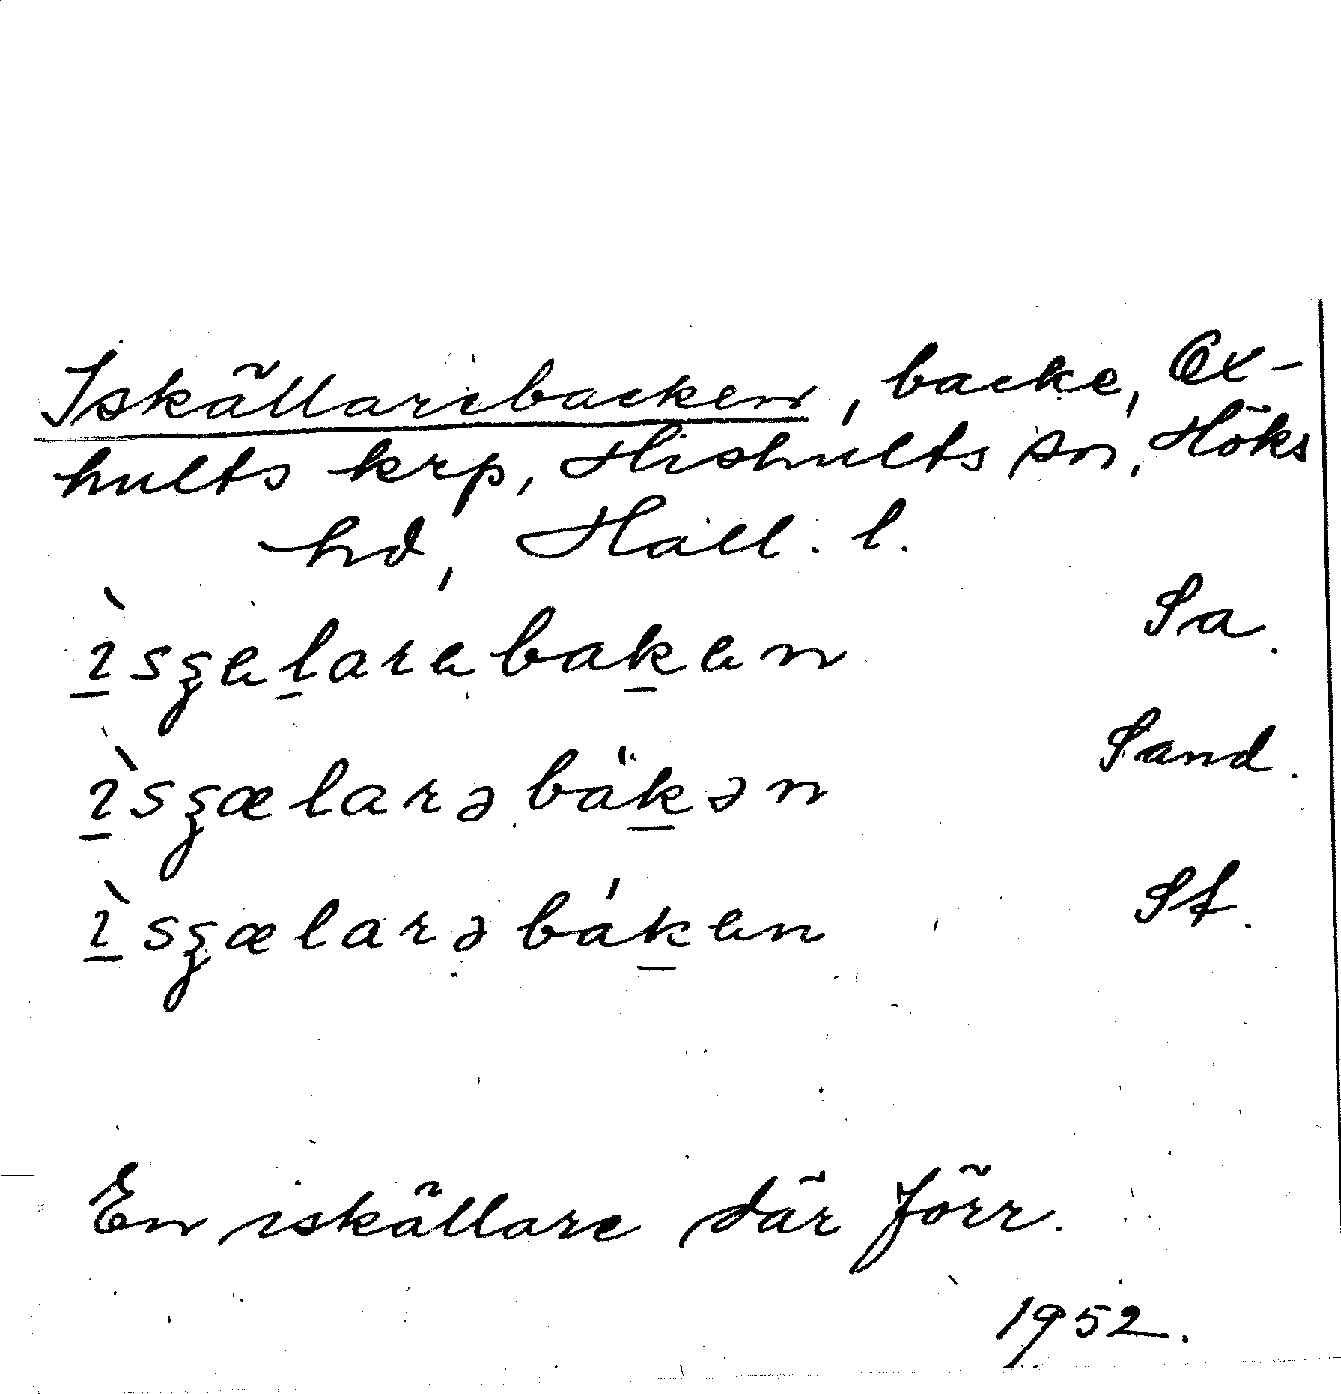 Iskällarebacken, backe, Ox-
hults krp, Hishults sn, Höks
hd, Hall. l.
ı̀sʒɐlarɐbakɐn Sa.
ı̀sʒælarəbäkən Sand.
ı̀sʒælarəbákɐn St.
En iskällare där förr.
1952.